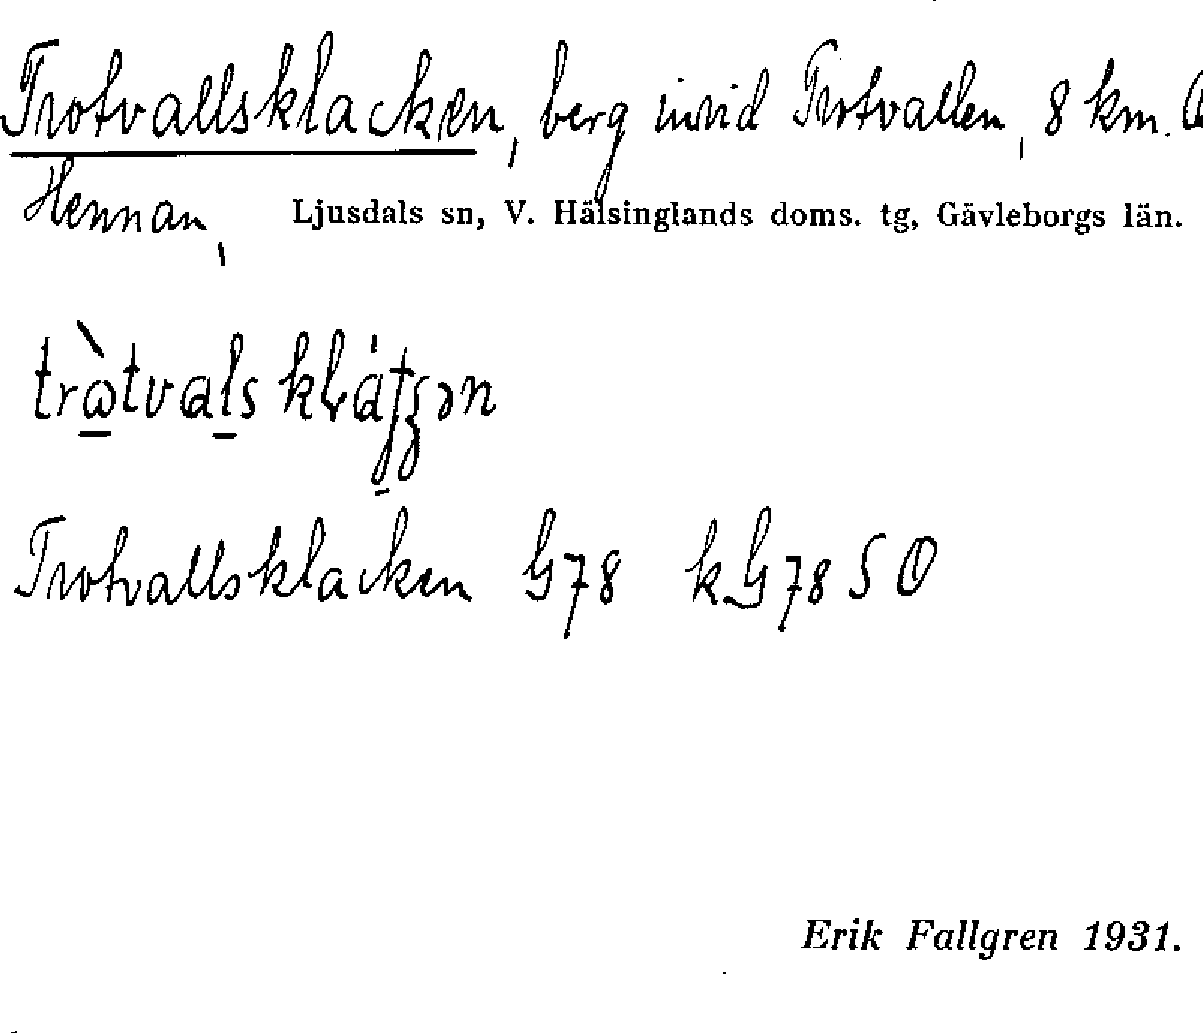 Trotvallsklacken, berg invid Trotvallen, 8 km.
Hennan, Ljusdals sn, V. Hälsinglands doms. tg, Gävleborgs län.
Trotvallsklacken G78 kG78 SO
Erik Fallgren 1931.